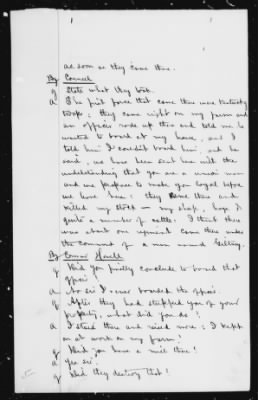 as soon as they came there.
By Counsel
Q State what they took.
A The first force that came there were Kentucky
troops; they came right on my farm and
an officer rode up there and told me he
wanted to board at my house, and I
told him I couldn't board him, and he
said, we have been sent here with the
understanding that you are a union man
and we propose to make you loyal before
we leave here: they came there and
killed my stock — my sheep, hogs &
quite a number of cattle: I think there
was about one regiment came there under
the command of a man named
By Comr Howell
Q Did you finally conclude to board that
officer?
A No sir I never boarded the officer.
Q After they had stripped you of your
property, what did you do?
A I stood there and raised more: I kept
on at work on my farm.
Q Did you have a mill there?
A Yes sir.
Q Did they destroy that?